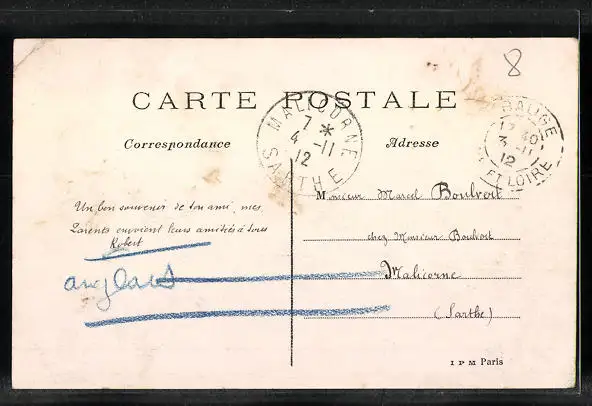 8
CARTE POSTALE
MALICORNE
7 *
4 -11
12
SARTHE
BAUGE
12 40
3 -11
12
ET LOIRE
Correspondance
Adresse
Un bon souvenir de ton ami, mes
Parents envoient leurs amitiés à tous
Robert
anglais
Monsieur Marcel Boulvert
chez Monsieur Boulvert
Malicorne
(Sarthe)
I P M Paris